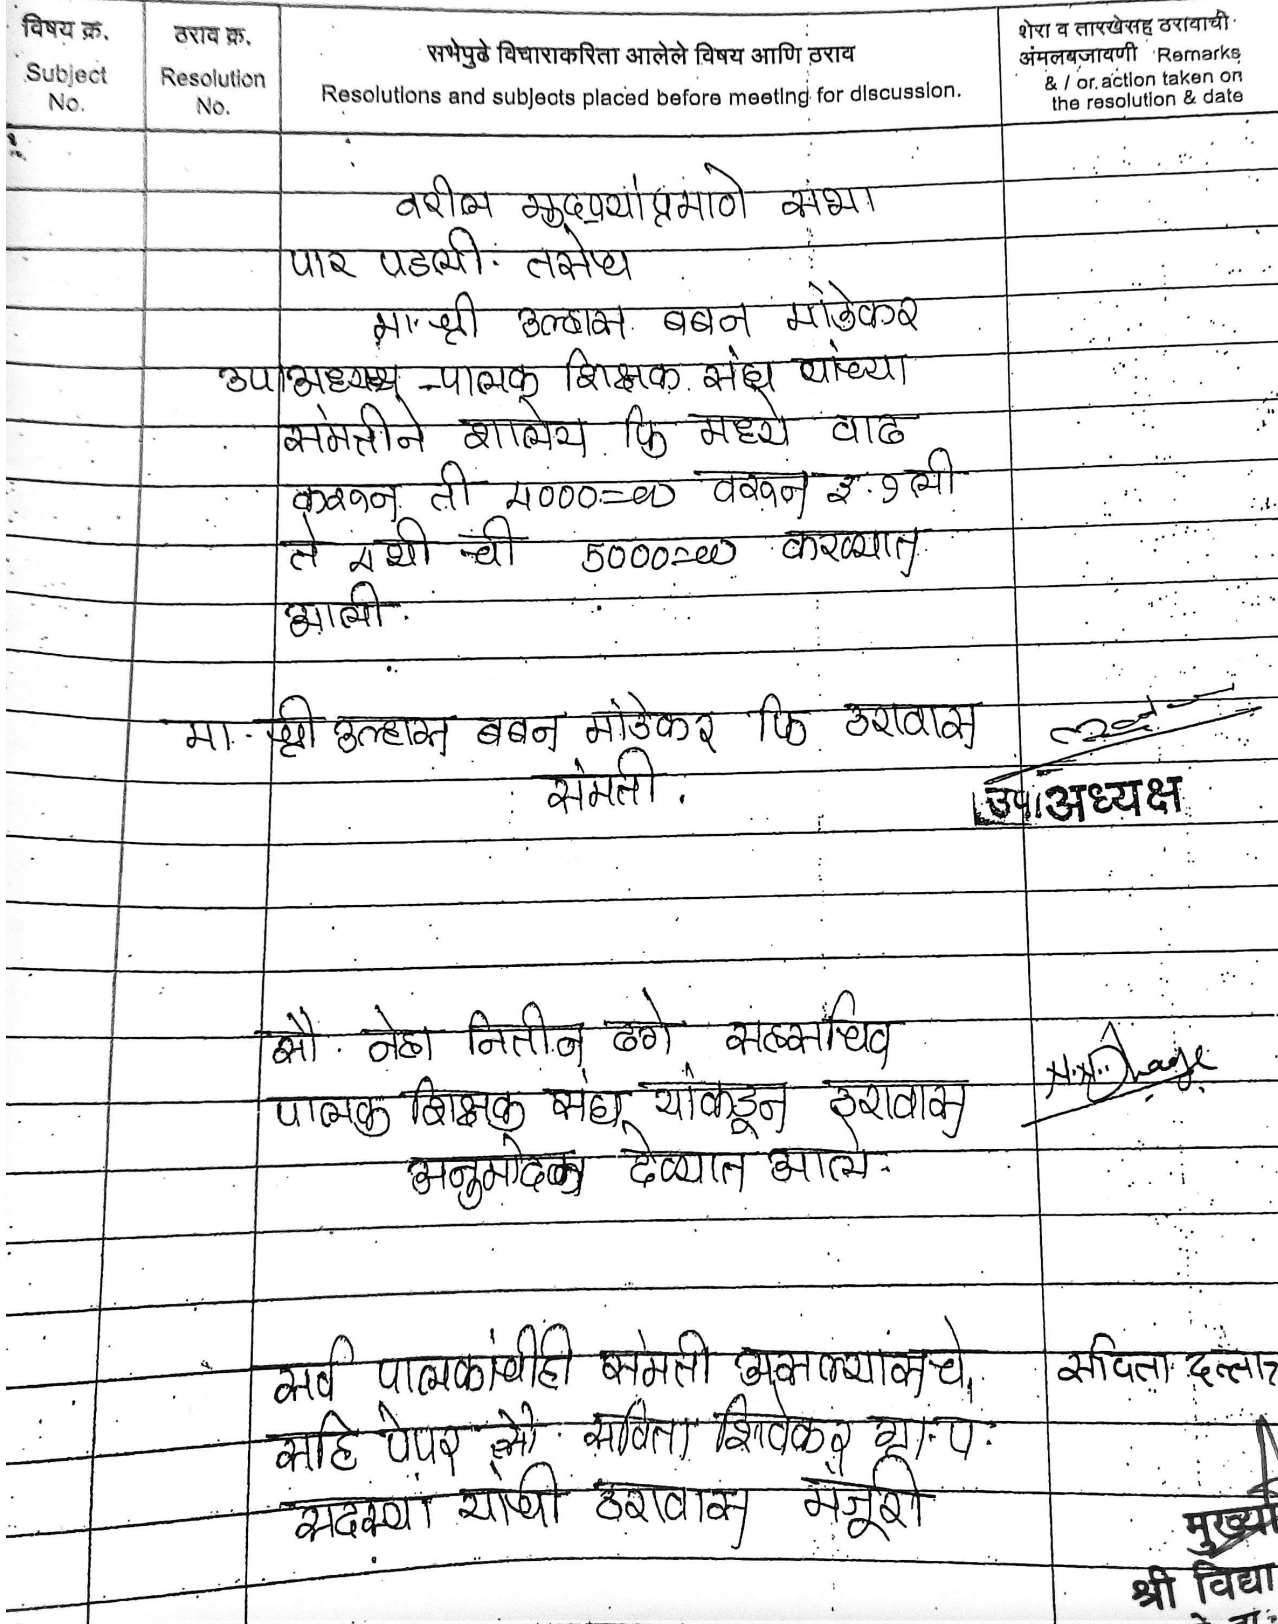 विषय क्र.
Subject
No.
ठराव क्र.
Resolution
No.
सभेपुढे विचाराकरिता आलेले विषय आणि ठराव
Resolutions and subjects placed before meeting for discussion.
शेरा व तारखेसह ठरावाची
अंमलबजावणी Remarks
& / or. action taken on
the resolution & date
वरील मुद्द्यांप्रमाणे सभा
पार पडली. तसेच
मा. श्री उल्हास बबन मांडेकर
उपाअध्यक्ष - पालक शिक्षक संघ यांच्या
संमतीने शालेय फि मध्ये वाढ
करून ती 4000=00 वरून इ. १ली
ते ४थी ची 5000=00 करण्यात
आली.
मा. श्री उल्हास बबन मांडेकर फि ठरावास
संमती.
उपाअध्यक्ष
सौ. नेहा नितीन ढगे सहसचिव
पालक शिक्षक संघ यांकडून ठरावास
अनुमोदन देण्यात आले.
N.N.Dhage
सर्व पालकांचीही संमती असल्यांसचे
सहि पेपर सौ. सविता शिवेकर ग्रा. प.
सदस्या यांची ठरावास मंजूरी
सविता दत्तात्र
मुख्या
श्री विद्या